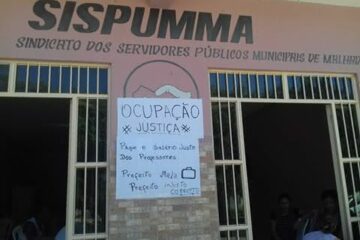 SISPUMMA
SINDICATO DOS SERVIDORES PÚBLICOS MUNICIPAIS DE MALHADA
OCUPAÇÃO
JUSTIÇA
Pague o Salário Justo
Dos Professores
Prefeito Mala
Prefeito
CORRUPTO